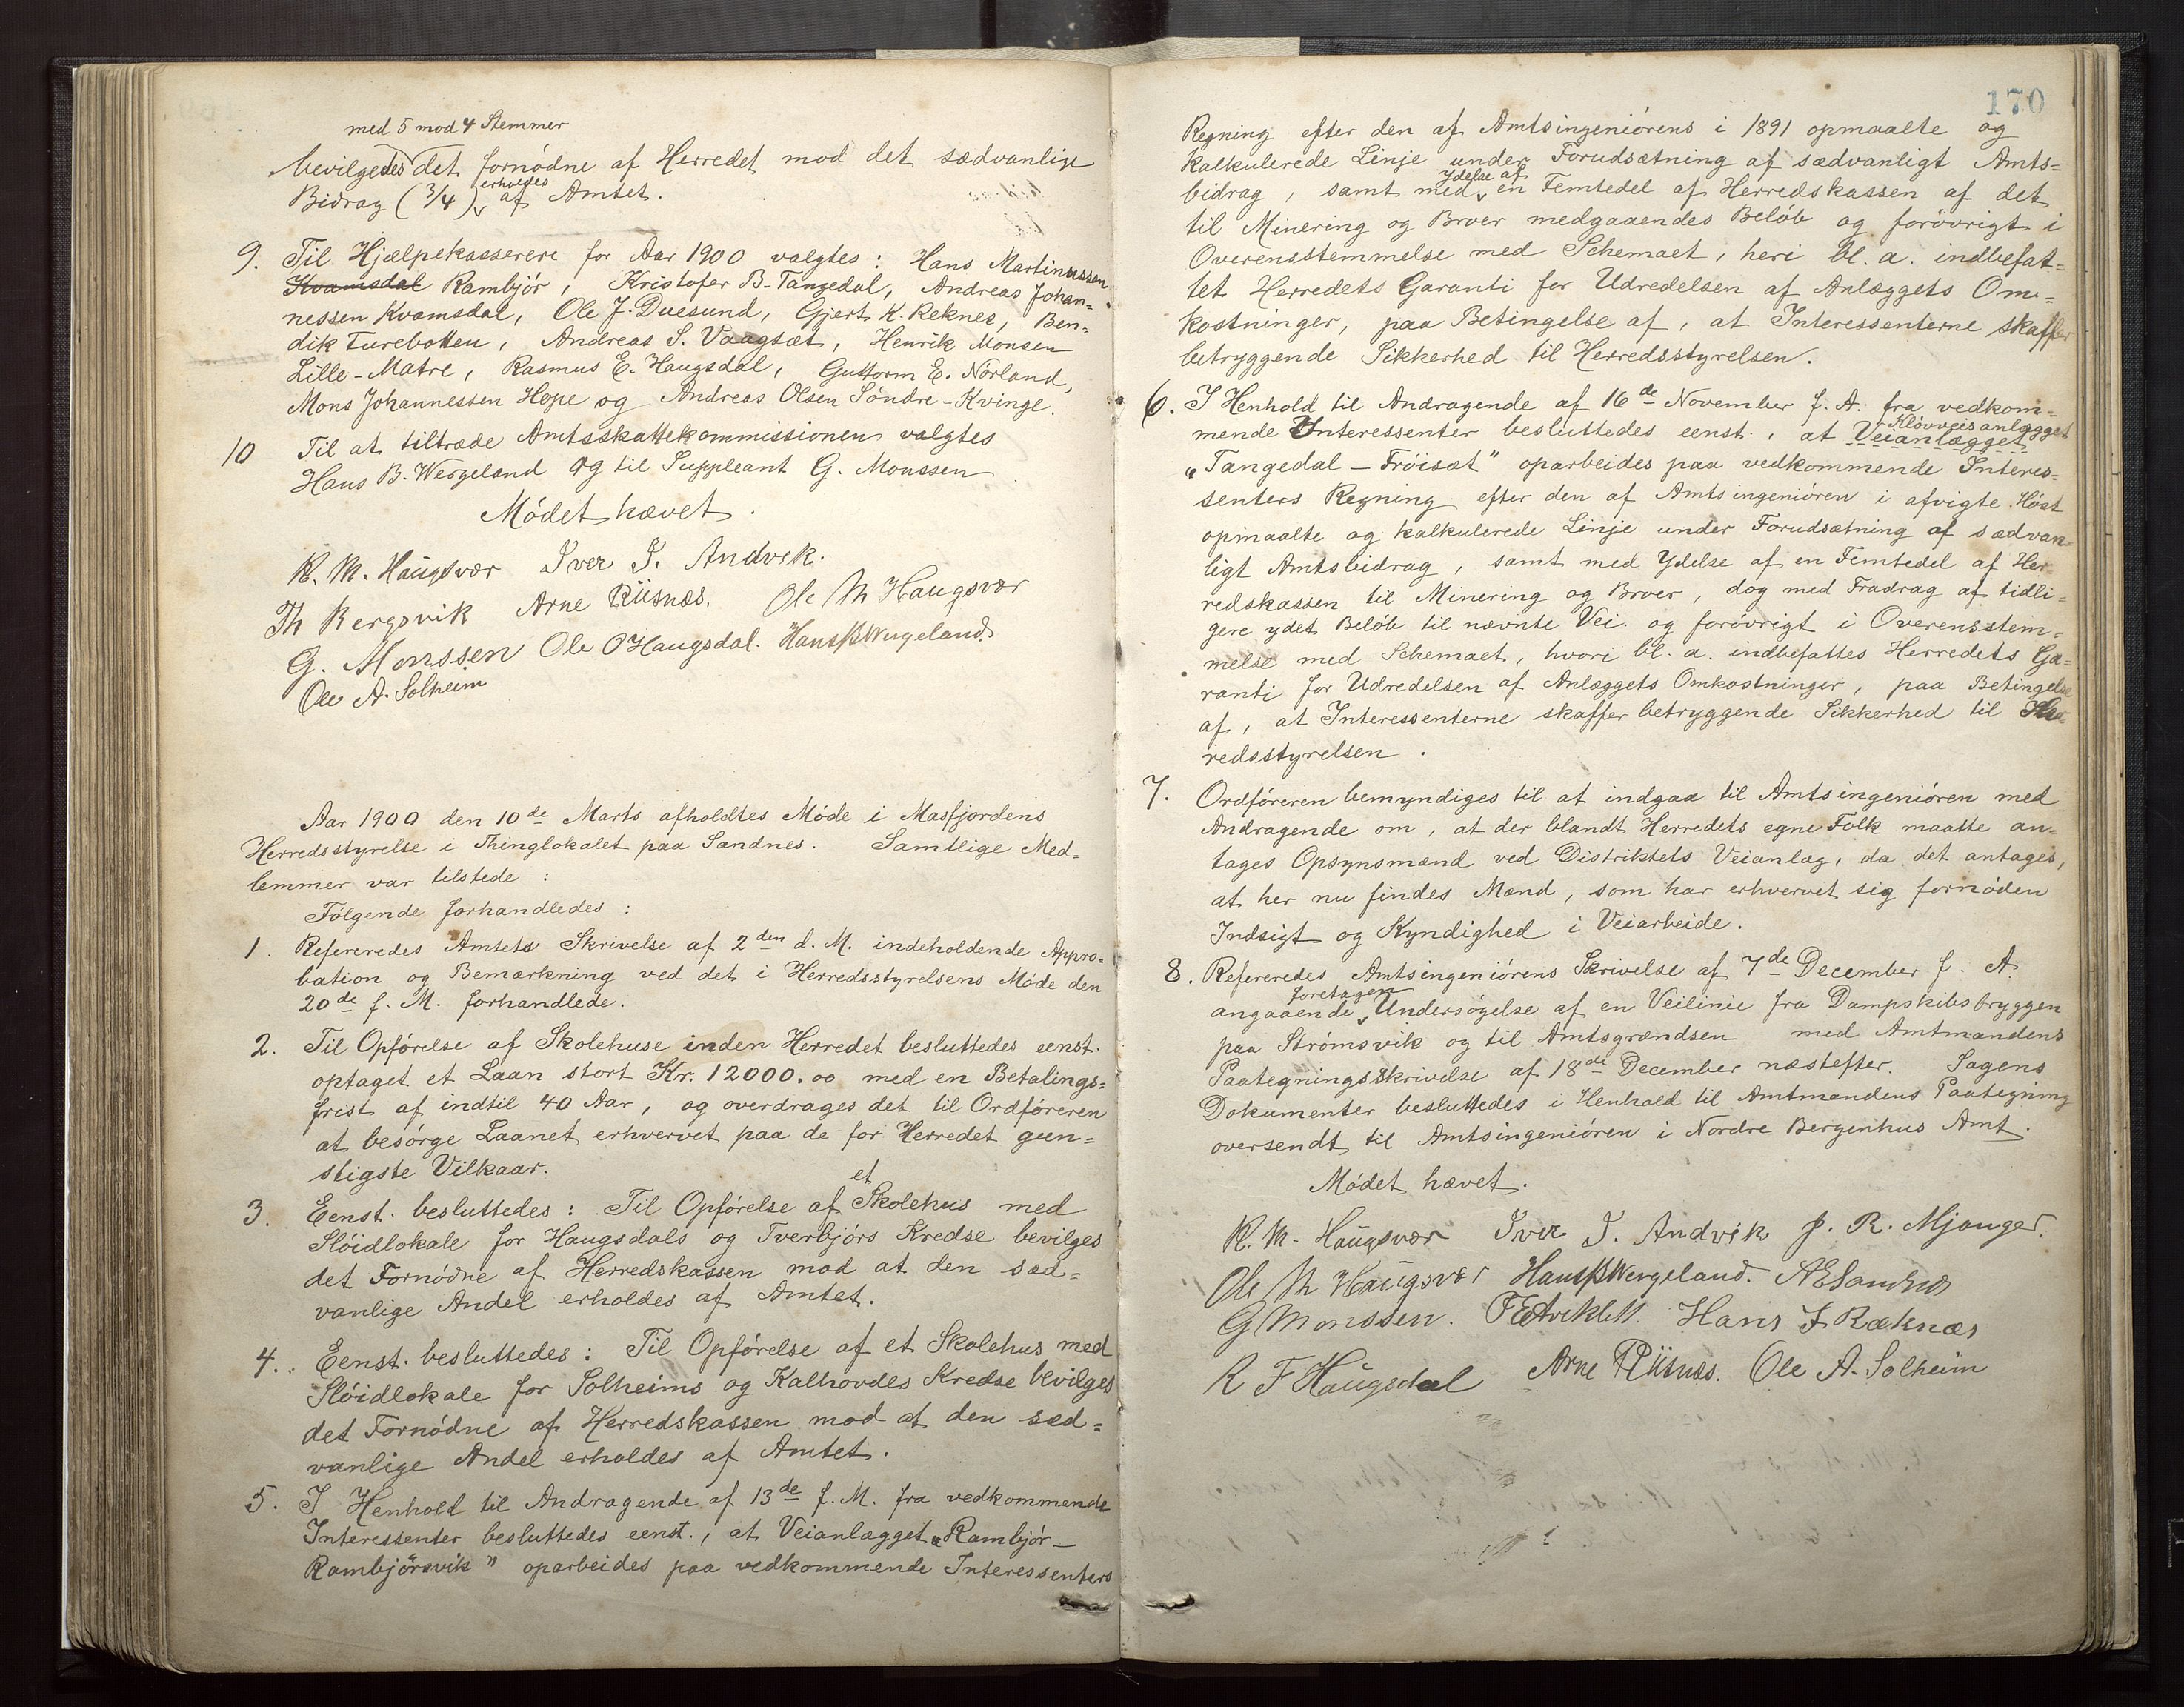 med 5 mod 4 Stemmer
bevilgedes det fornödne af Herredet mod det sædvanlige
Bidrag (3/4) erholdes af Amtet.
9. Til Hjælpekasserere for Aar 1900 valgtes: Hans Martinussen
Kvamsdal Rambjör, Kristofer B. Tangedal, Andreas Johan=
nessen Kvamsdal, Ole J. Duesund, Gjert K. Reknes, Ben=
dik Furebotten, Andreas S. Vaagsæt, Henrik Monsen
Lille-Matre, Rasmus E. Haugsdal, Guttorm E. Nörland,
Mons Johannessen Hope og Andreas Olsen Söndre-Kvinge.
10 Til at tiltræde Amtsskattekommissionen valgtes
Hans B. Wergeland og til Suppleant G. Monssen
Mödet hævet.
K. M. Haugsvær Iver I. Andvik.
Th Bergsvik Arne Riisnæs. Ole M Haugsvær
G. Monssen Ole O Haugsdal. Hans B Wergeland
Ole A. Solheim
Aar 1900 den 10de Marts afholdtes Möde i Masfjordens
Herredsstyrelse i Thinglokalet paa Sandnes. Samtlige Med=
lemmer var tilstede:
Fölgende forhandledes:
1. Refereredes Amtets Skrivelse af 2den d. M. indeholdende Appro=
bation og Bemærkning ved det i Herredsstyrelsens Möde den
20de f. M. forhandlede.
2. Til Opförelse af Skolehuse inden Herredet besluttedes eenst.
optaget et Laan stort Kr. 12000.00 med en Betalings=
frist af indtil 40 Aar, og overdrages det til Ordföreren
at besörge Laanet erhvervet paa de for Herredet gun=
stigste Vilkaar.
3. Eenst. besluttedes: Til Opförelse af et Skolehus med
Slöidlokale for Haugsdals og Tverbjörs Kredse bevilges
det Fornödne af Herredskassen mod at den sæd=
vanlige Andel erholdes af Amtet.
4. Eenst. besluttedes: Til Opförelse af et Skolehus med
Slöidlokale for Solheims og Kalhovdes Kredse bevilges
det Fornödne af Herredskassen mod at den sæd=
vanlige Andel erholdes af Amtet.
5. I Henhold til Andragende af 13de f. M. fra vedkommende
Interessenter besluttedes eenst., at Veianlægget „Rambjör—
Rambjörsvik" oparbeides paa vedkommende Interessenters
170
Regning efter den af Amtsingeniörens i 1891 opmaalte og
kalkulerede Linje under Forudsætning af sædvanligt Amts=
bidrag, samt med Ydelse af en Femtedel af Herredskassen af det
til Minering og Broer medgaaendes Belöb og forövrigt i
Overensstemmelse med Schemaet, heri bl. a. indbefat=
tet Herredets Garanti for Udredelsen af Anlæggets Om=
kostninger, paa Betingelse af, at Interessenterne skaffer
betryggende Sikkerhed til Herredsstyrelsen.
6. I Henhold til Andragende af 16de November f. A. fra vedkom=
mende Interessenter besluttedes eenst., at Veianlægget Klövveisanlægget
„Tangedal – Fröisæt" oparbeides paa vedkommende Interes=
senters Regning efter den af Amtsingeniören i afvigte Höst
opmaalte og kalkulerede Linje under Forudsætning af sædvan=
ligt Amtsbidrag, samt med Ydelse af en Femtedel af Her=
redskassen til Minering og Broer, dog med Fradrag af tidli=
gere ydet Belöb til nævnte Vei. og forövrigt i Overensstem=
melse med Schemaet, hvori bl. a. indbefattes Herredets Ga=
ranti for Udredelsen af Anlæggets Omkostninger, paa Betingelse
af, at Interessenterne skaffer betryggende Sikkerhed til Her=
redsstyrelsen.
7. Ordföreren bemyndiges til at indgaa til Amtsingeniören med
Andragende om, at der blandt Herredets egne Folk maatte an=
tages Opsynsmænd ved Distriktets Veianlæg, da det antages,
at her nu findes Mænd, som har erhvervet sig fornöden
Indsigt og Kyndighed i Veiarbeide.
8. Refereredes Amtsingeniörens Skrivelse af 7de December f. A.
angaaende foretagen Undersögelse af en Veilinie fra Dampskibsbryggen
paa Strömsvik og til Amtsgrændsen med Amtmandens
Paategningsskrivelse af 18de December næstefter. Sagens
Dokumenter besluttedes i Henhold til Amtmandens Paategning
oversendt til Amtsingeniören i Nordre Bergenhus Amt.
Mödet hævet.
K. M. Haugsvær Iver I. Andvik J. R. Mjanger.
Ole M Haugsvær Hans B Wergeland. A E Sandnæs
G Monssen. Hans J. Ræknæs
R F Haugsdal Arne Riisnæs. Ole A. Solheim